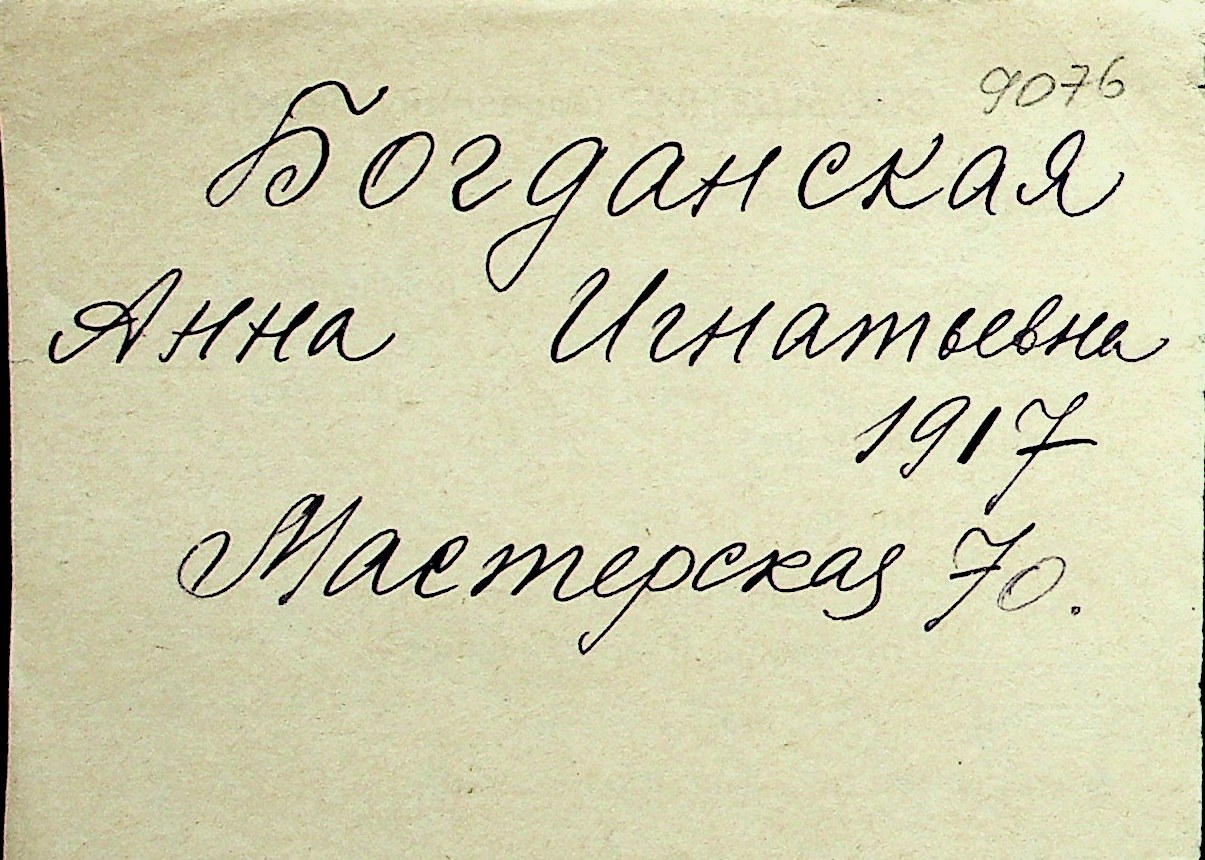 9076
Богданская
Анна Игнатьевна
1917
Мастерская 70.